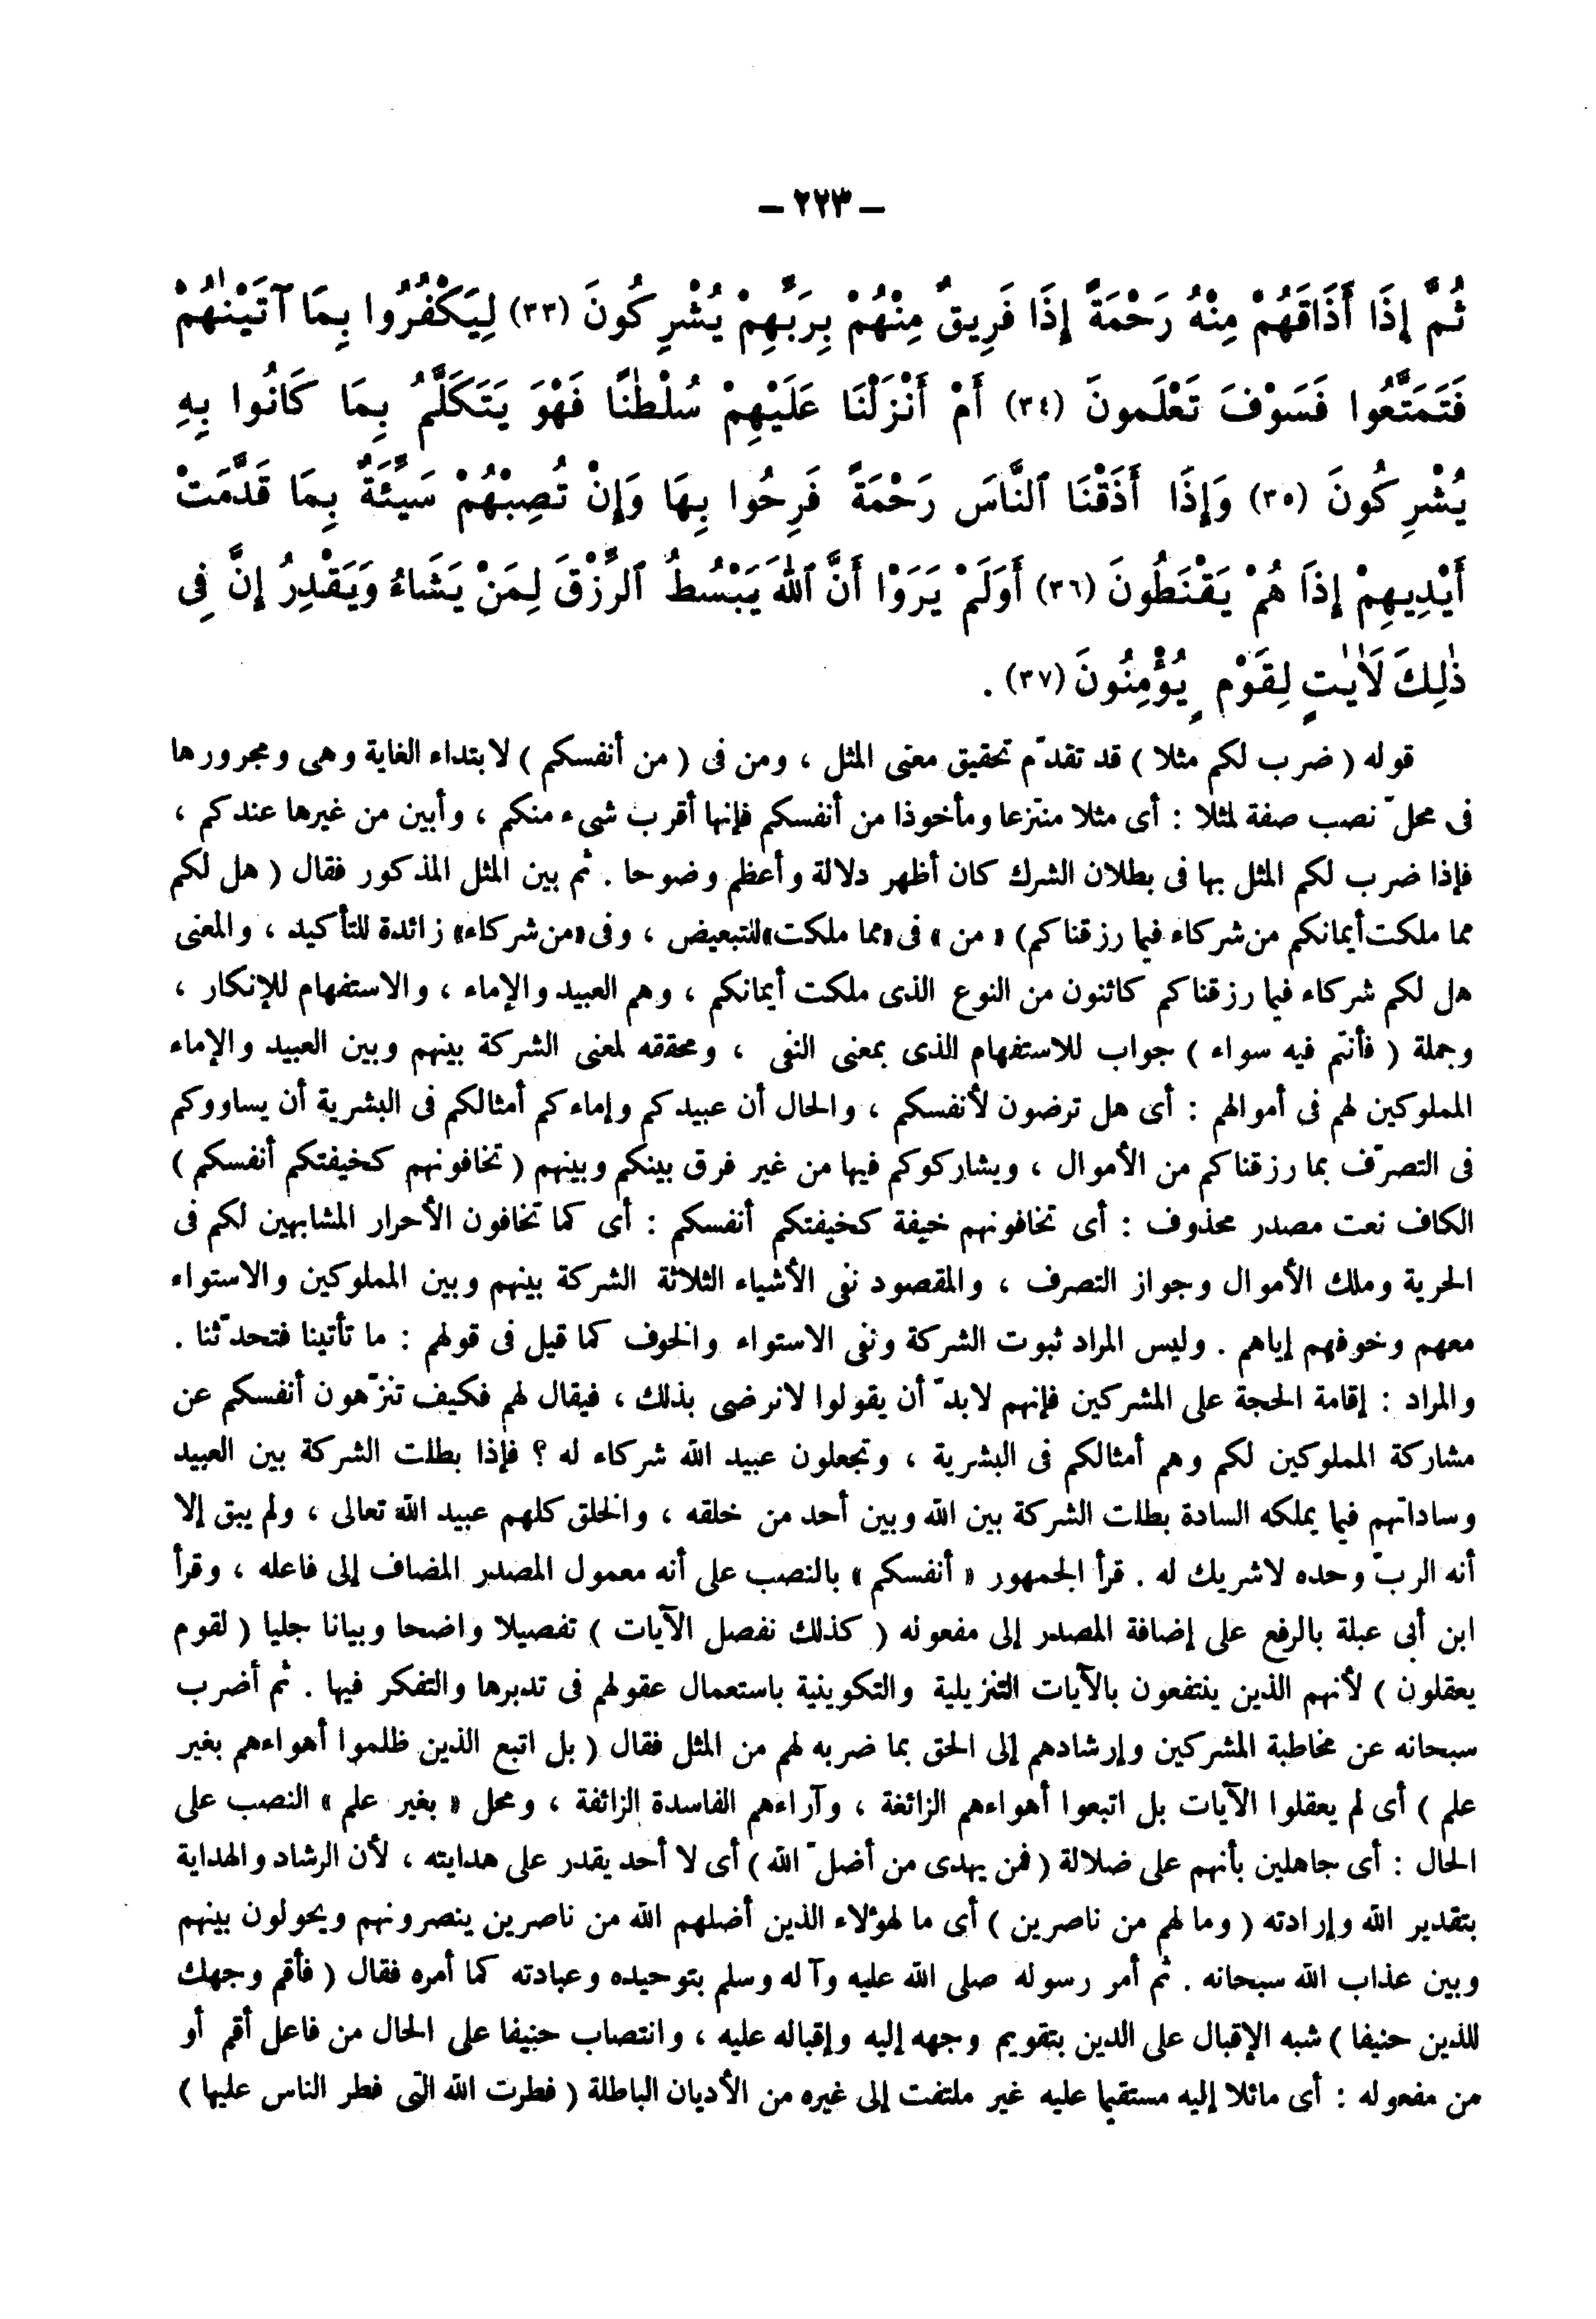 – ٢٢٣ –
ثُمَّ إِذَا أَذَاقَهُمْ مِنْهُ رَحْمَةً إِذَا فَرِيقٌ مِنْهُمْ بِرَبِّهِمْ يُشْرِكُونَ (٣٣) لِيَكْفُرُوا بِمَا آتَيْنٰهُمْ
فَتَمَتَّعُوا فَسَوْفَ تَعْلَمونَ (٣٤) أَمْ أَنْزَلْنَا عَلَيْهِمْ سُلْطٰنًا فَهْوَ يَتَكَلَّمُ بِمَا كَانُوا بِهِ
يُشْرِكُونَ (٣٥) وَإِذَا أَذَقْنَا ٱلنَّاسَ رَحْمَةً فَرِحُوا بِهَا وَإِنْ تُصِبْهُمْ سَيِّئَةٌ بِمَا قَدَّمَتْ
أَيْدِيهِمْ إِذَا هُمْ يَقْنَطُونَ (٣٦) أَوَلَمْ يَرَوْا أَنَّ ٱللهَ يَبْسُطُ ٱلرِّزْقَ لِمَنْ يَشَاءُ وَيَقْدِرُ إِنَّ فِى
ذٰلِكَ لَاٰيٰتٍ لِقَوْمٍ يُؤْمِنُونَ (٣٧) .
قوله ( ضرب لكم مثلا ) قد تقدّم تحقيق معنى المثل ، ومن فى ( من أنفسكم ) لابتداء الغاية وهى ومجرورها
فى محلّ نصب صفة لمثلا : أى مثلا منتزعا ومأخوذا من أنفسكم فإنها أقرب شىء منكم ، وأبين من غيرها عندكم ،
فإذا ضرب لكم المثل بها فى بطلان الشرك كان أظهر دلالة وأعظم وضوحا . ثم بين المثل المذكور فقال ( هل لكم
مما ملكت أيمانكم من شركاء فيما رزقناكم) « من » فى «مما ملكت» للتبعيض ، وفى «من شركاء» زائدة للتأكيد ، والمعنى
هل لكم شركاء فيما رزقناكم كائنون من النوع الذى ملكت أيمانكم ، وهم العبيد والإماء ، والاستفهام للإنكار ،
وجملة ( فأنتم فيه سواء ) جواب للاستفهام الذى بمعنى النفى ، ومحققه لمعنى الشركة بينهم وبين العبيد والإماء
المملوكين لهم فى أموالهم : أى هل ترضون لأنفسكم ، والحال أن عبيدكم وإماءكم أمثالكم فى البشرية أن يساووكم
فى التصرّف بما رزقناكم من الأموال ، ويشاركوكم فيها من غير فرق بينكم وبينهم ( تخافونهم كخيفتكم أنفسكم )
الكاف نعت مصدر محذوف : أى تخافونهم خيفة كخيفتكم أنفسكم : أى كما تخافون الأحرار المشابهين لكم فى
الحرية وملك الأموال وجواز التصرف ، والمقصود نفى الأشياء الثلاثة الشركة بينهم وبين المملوكين والاستواء
معهم وخوفهم إياهم . وليس المراد ثبوت الشركة ونفى الاستواء والخوف كما قيل فى قولهم : ما تأتينا فتحدّثنا .
والمراد : إقامة الحجة على المشركين فإنهم لابدّ أن يقولوا لانرضى بذلك ، فيقال لهم فكيف تنزّهون أنفسكم عن
مشاركة المملوكين لكم وهم أمثالكم فى البشرية ، وتجعلون عبيد الله شركاء له ؟ فإذا بطلت الشركة بين العبيد
وساداتهم فيما يملكه السادة بطلت الشركة بين الله وبين أحد من خلقه ، والخلق كلهم عبيد الله تعالى ، ولم يبق إلا
أنه الربّ وحده لاشريك له . قرأ الجمهور « أنفسكم » بالنصب على أنه معمول المصدر المضاف إلى فاعله ، وقرأ
ابن أبى عبلة بالرفع على إضافة المصدر إلى مفعوله ( كذلك نفصل الآيات ) تفصيلا واضحا وبيانا جليا ( لقوم
يعقلون ) لأنهم الذين ينتفعون بالآيات التنزيلية والتكوينية باستعمال عقولهم فى تدبرها والتفكر فيها . ثم أضرب
سبحانه عن مخاطبة المشركين وإرشادهم إلى الحق بما ضربه لهم من المثل فقال ( بل اتبع الذين ظلموا أهواءهم بغير
علم ) أى لم يعقلوا الآيات بل اتبعوا أهواءهم الزائغة ، وآراءهم الفاسدة الزائفة ، ومحل « بغير علم » النصب على
الحال : أى جاهلين بأنهم على ضلالة ( فمن يهدى من أضلّ الله ) أى لا أحد يقدر على هدايته ، لأن الرشاد والهداية
بتقدير الله وإرادته ( وما لهم من ناصرين ) أى ما لهؤلاء الذين أضلهم الله من ناصرين ينصرونهم ويحولون بينهم
وبين عذاب الله سبحانه . ثم أمر رسوله صلى الله عليه وآله وسلم بتوحيده وعبادته كما أمره فقال ( فأقم وجهك
للدين حنيفا ) شبه الإقبال على الدين بتقويم وجهه إليه وإقباله عليه ، وانتصاب حنيفا على الحال من فاعل أقم أو
من مفعوله : أى مائلا إليه مستقيما عليه غير ملتفت إلى غيره من الأديان الباطلة ( فطرت الله التى فطر الناس عليها )